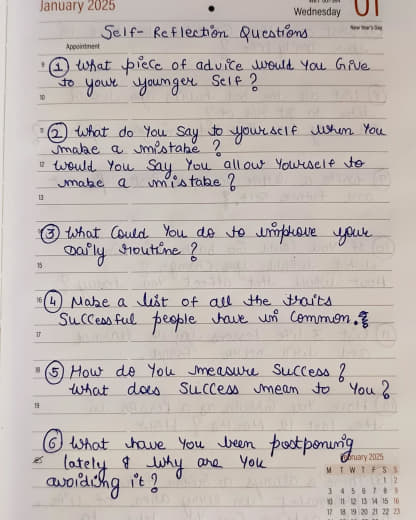 January 2025
Wednesday 01
New Year's Day
Self-Reflection Questions
Appointment
9 ① What piece of advice would You Give
to your younger Self?
10
11 ② What do You Say to yourself when You
make a mistake ?
12 Would You Say You allow Yourself to
make a mistake ?
13
③ What Could You do to improve your
Daily routine ?
15
16 ④ Make a list of all the traits
Successful people have in Common.
17
18 ⑤ How do You measure Success ?
What does Success mean to You ?
19
⑥ What have You been postponing
lately & why are You
avoiding it ?
February 2025
M T W T F S S
1 2
3 4 5 6 7 8 9
10 11 12 13 14 15 16
17 18 19 20 21 22 23